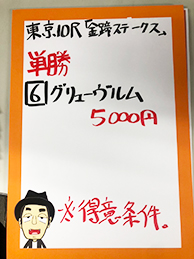 東京10R「金蹄ステークス」
単勝
6 グリューヴルム
5000円
※得意条件。